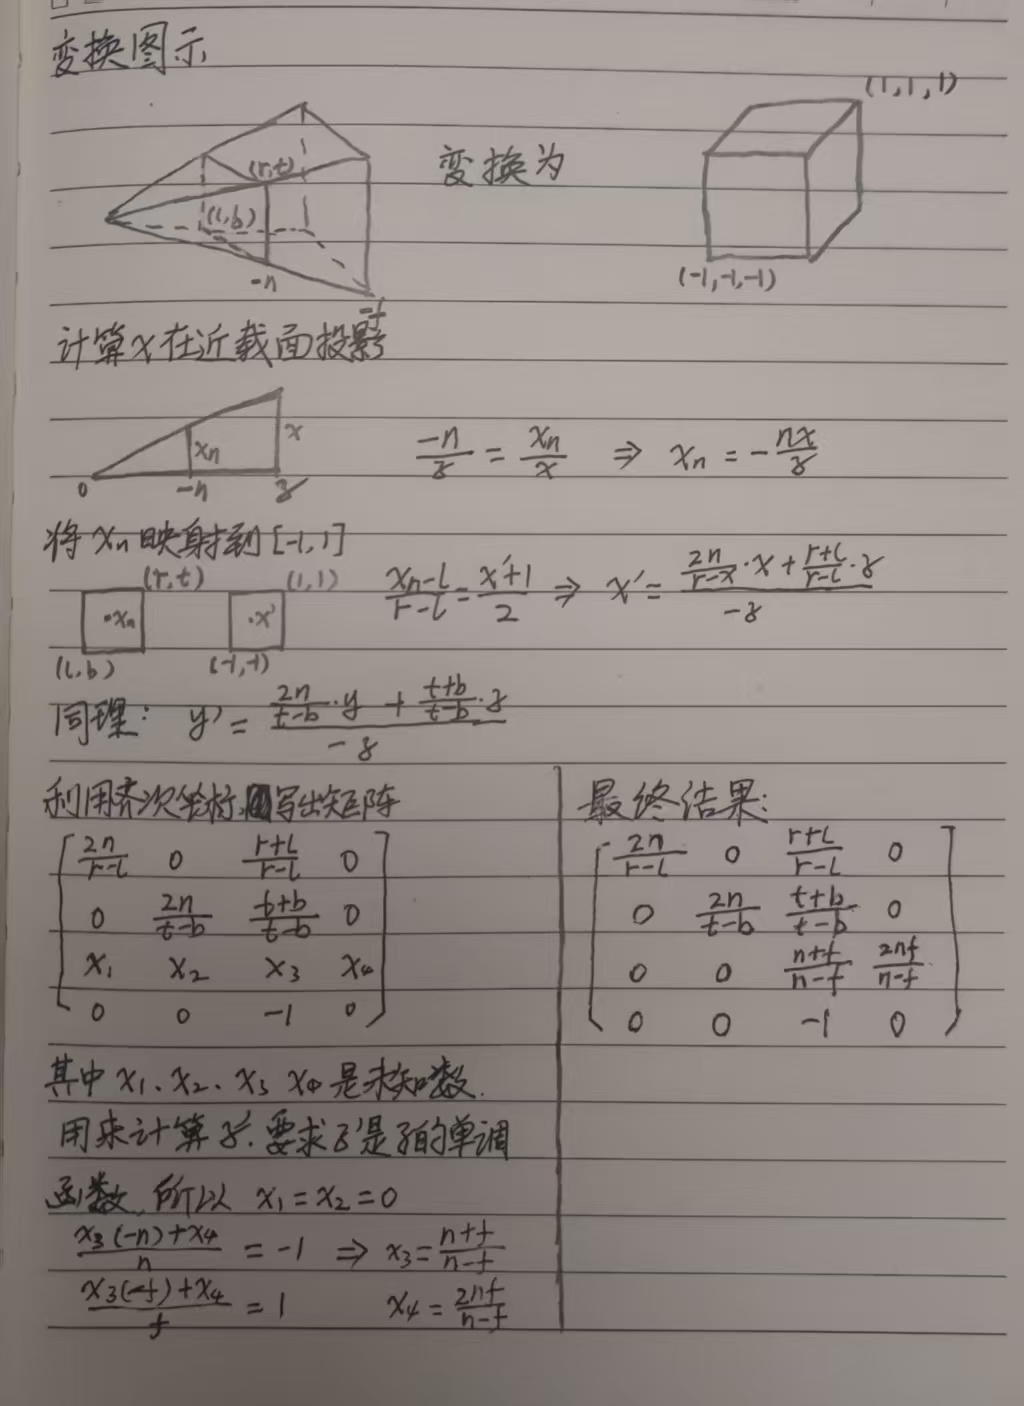 变换图示
(1,1,1)
(r,t)
变换为
(l,b)
-n
(-1,-1,-1)
-f
计算x在近截面投影
xₙ
x
0
-n
z
-n/z = xₙ/x ⇒ xₙ = -nx/z
将xₙ映射到[-1,1]
(r,t)
(1,1)
·xₙ
·x'
(l,b)
(-1,-1)
(xₙ-l)/(r-l) = (x'+1)/2 ⇒ x' = (2n/(r-x)·x + (r+l)/(r-l)·z)/(-z)
同理: y' = (2n/(t-b)·y + (t+b)/(t-b)·z)/(-z)
利用齐次坐标,写出矩阵
2n/(r-l) 0 (r+l)/(r-l) 0
0 2n/(t-b) (t+b)/(t-b) 0
x₁ x₂ x₃ x₄
0 0 -1 0
其中x₁、x₂、x₃ x₄是未知数.
用来计算z'.要求z'是z的单调
函数,所以 x₁=x₂=0
(x₃(-n)+x₄)/n = -1 ⇒ x₃ = (n+f)/(n-f)
(x₃(-f)+x₄)/f = 1 x₄ = 2nf/(n-f)
最终结果:
2n/(r-l) 0 (r+l)/(r-l) 0
0 2n/(t-b) (t+b)/(t-b) 0
0 0 (n+f)/(n-f) 2nf/(n-f)
0 0 -1 0